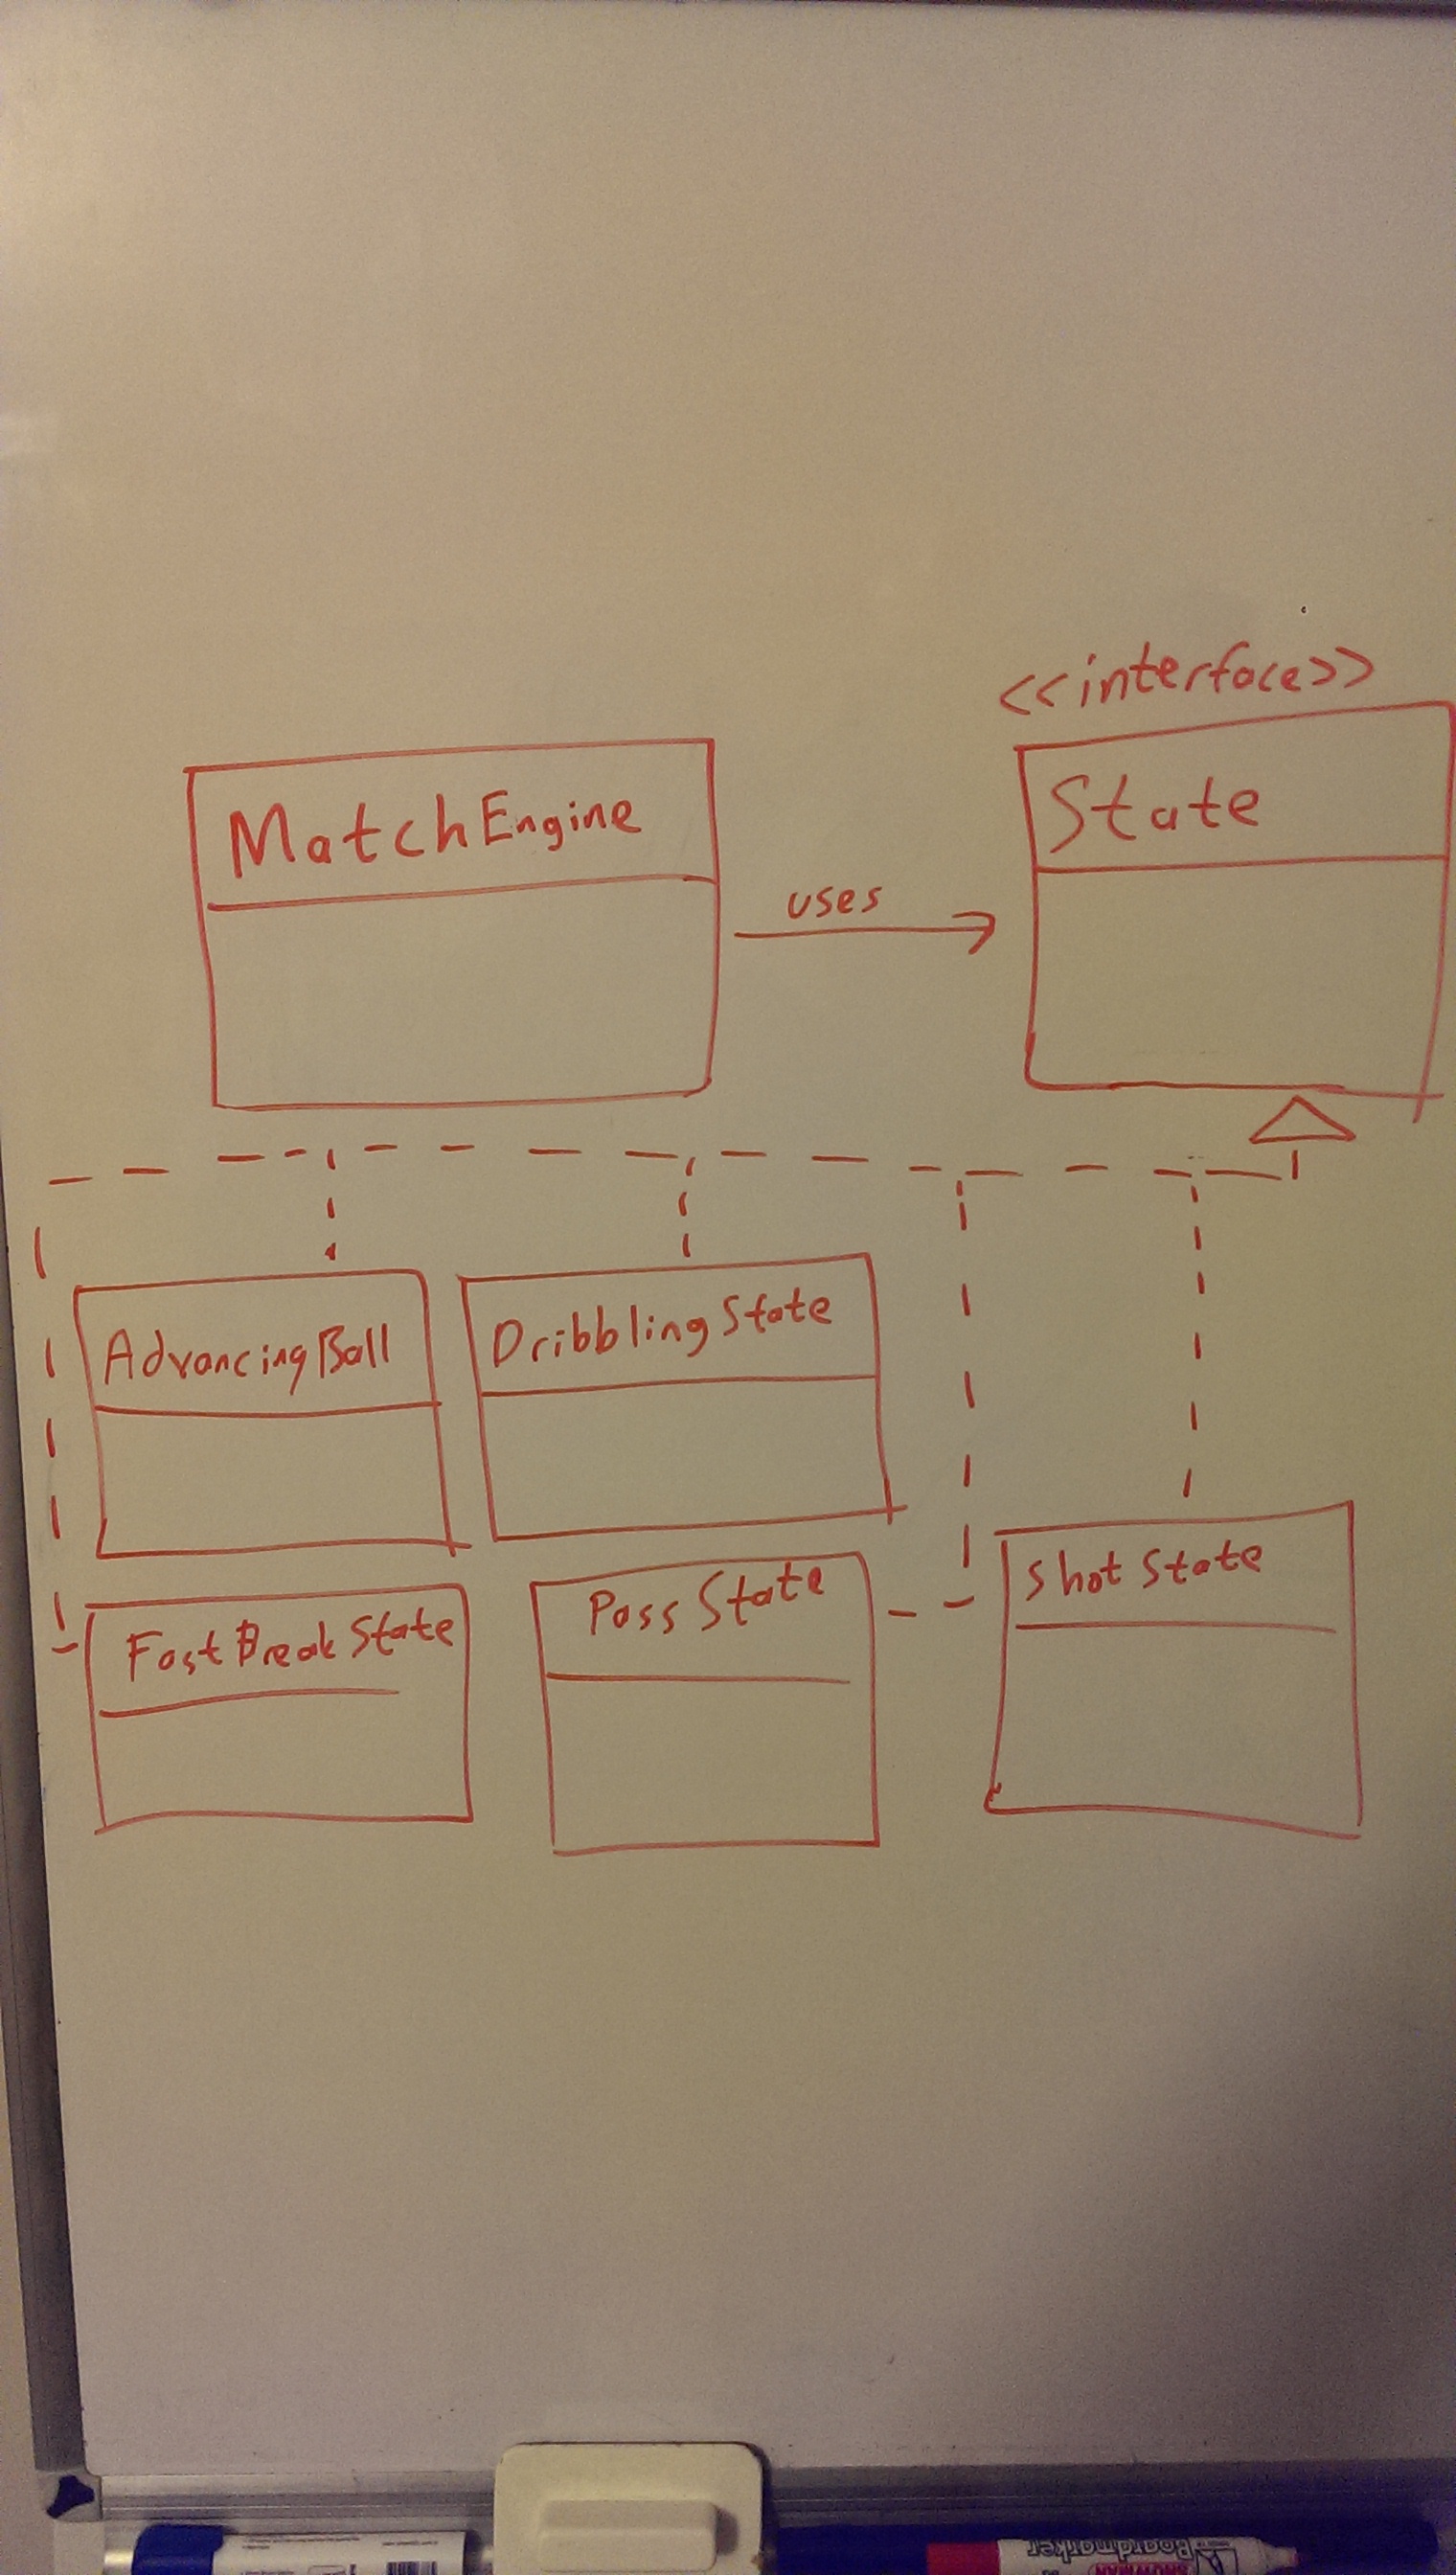 <<interface>>
MatchEngine
State
uses
AdvancingBall
DribblingState
FastBreakState
PassState
ShotState
Boardmarker